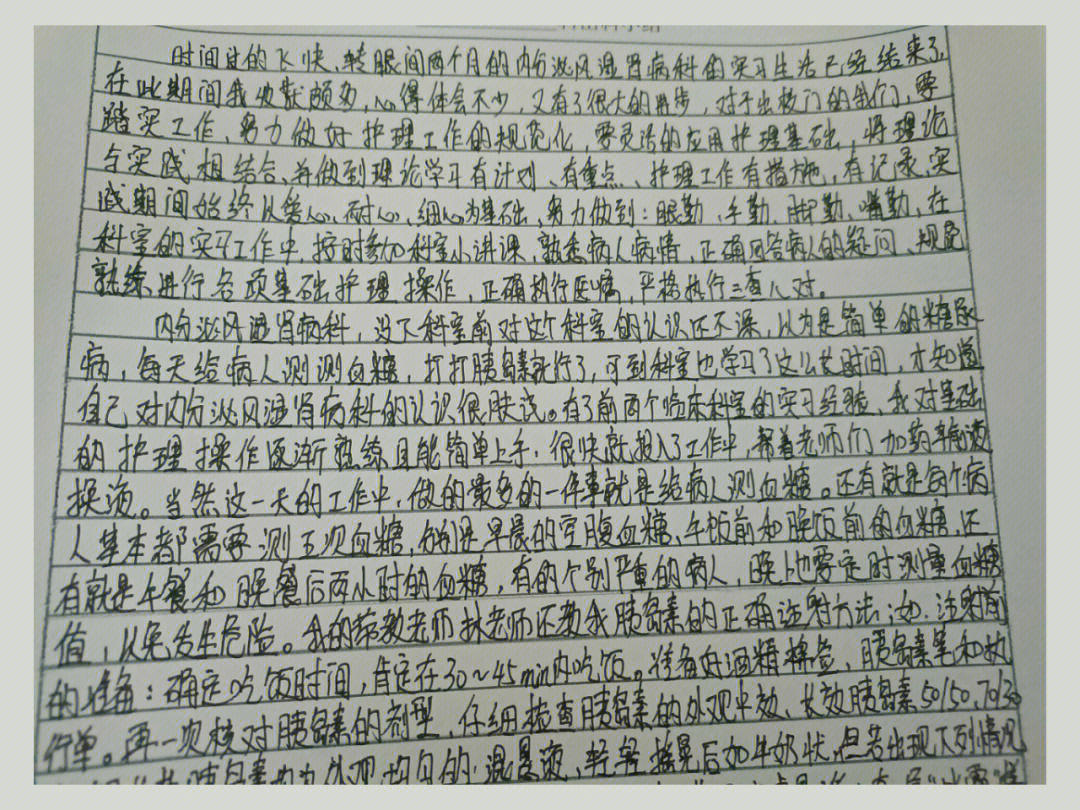 时间过的飞快、转眼间两个月的内分泌风湿肾病科的实习生活已经结束了,
在此期间我收获颇多,心得体会不少,又有了很大的进步,对于出校门的我们,要
踏实工作、努力做好护理工作的规范化,要灵活的应用护理基础,将理论
与实践相结合、并做到理论学习有计划、有重点、护理工作有措施,有记录、实
践期间始终以爱心、耐心、细心为基础、努力做到:眼勤、手勤、脚勤、嘴勤,在
科室的实习工作中,按时参加科室小讲课、熟悉病人病情,正确回答病人的疑问、规范
熟练进行各项基础护理操作,正确执行医嘱,严格执行三查八对。
内分泌风湿肾病科,没下科室前对这个科室的认识还不深,以为是简单的糖尿
病,每天给病人测测血糖,打打胰岛素就行了,可到科室也学习了这么长时间,才知道
自己对内分泌风湿肾病科的认识很肤浅。有了前两个临床科室的实习经验、我对基础
的护理操作逐渐熟练且能简单上手,很快就投入了工作中,帮着老师们加药输液
换液。当然这一天的工作中,做的最多的一件事就是给病人测血糖。还有就是每个病
人基本都需要测五次血糖,分别是早晨的空腹血糖、午饭前和晚饭前的血糖、还
有就是午餐和晚餐后两小时的血糖,有的个别严重的病人,晚上也要定时测量血糖
值,以免发生危险。我的带教老师林老师还教我胰岛素的正确注射方法;如:注射前
的准备:确定吃饭时间,肯定在30~45min内吃饭。准备好酒精棉签、胰岛素笔和执
行单。再一次核对胰岛素的剂型,仔细检查胰岛素的外观中效、长效胰岛素50/50、70/30
胰岛素均为外观均匀的混悬液,轻轻摇晃后如牛奶状,但若出现下列情况